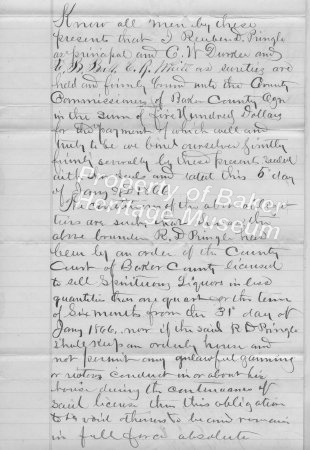 Know all men by these
presents that I Reuben D. Pringle
as principal and C. W. Durkee and
as sureties are
held and firmly bound unto the County
Commissioners of Baker County Ogn
in the sum of five Hundred Dollars
for the payment of which well and
truly to be we bind ourselves jointly
firmly severally by these present sealed
with our seals and dated this 5 day
of Jany
The conditions of the above
are such that whereas the
above bounden R. D. Pringle has
been by an order of the County
Court of Baker County licensed
to sell Spirituous Liquors in less
quantities than one quart for the term
of Six months from the 31st day of
Jany 1866, now if the said R D Pringle
shall keep an orderly house and
not permit any unlawful gaming
or riotous conduct in or about his
house during the continuance of
said license then this obligation
to be void otherwise to be and remain
in full force absolute
Property of Baker
Heritage Museum